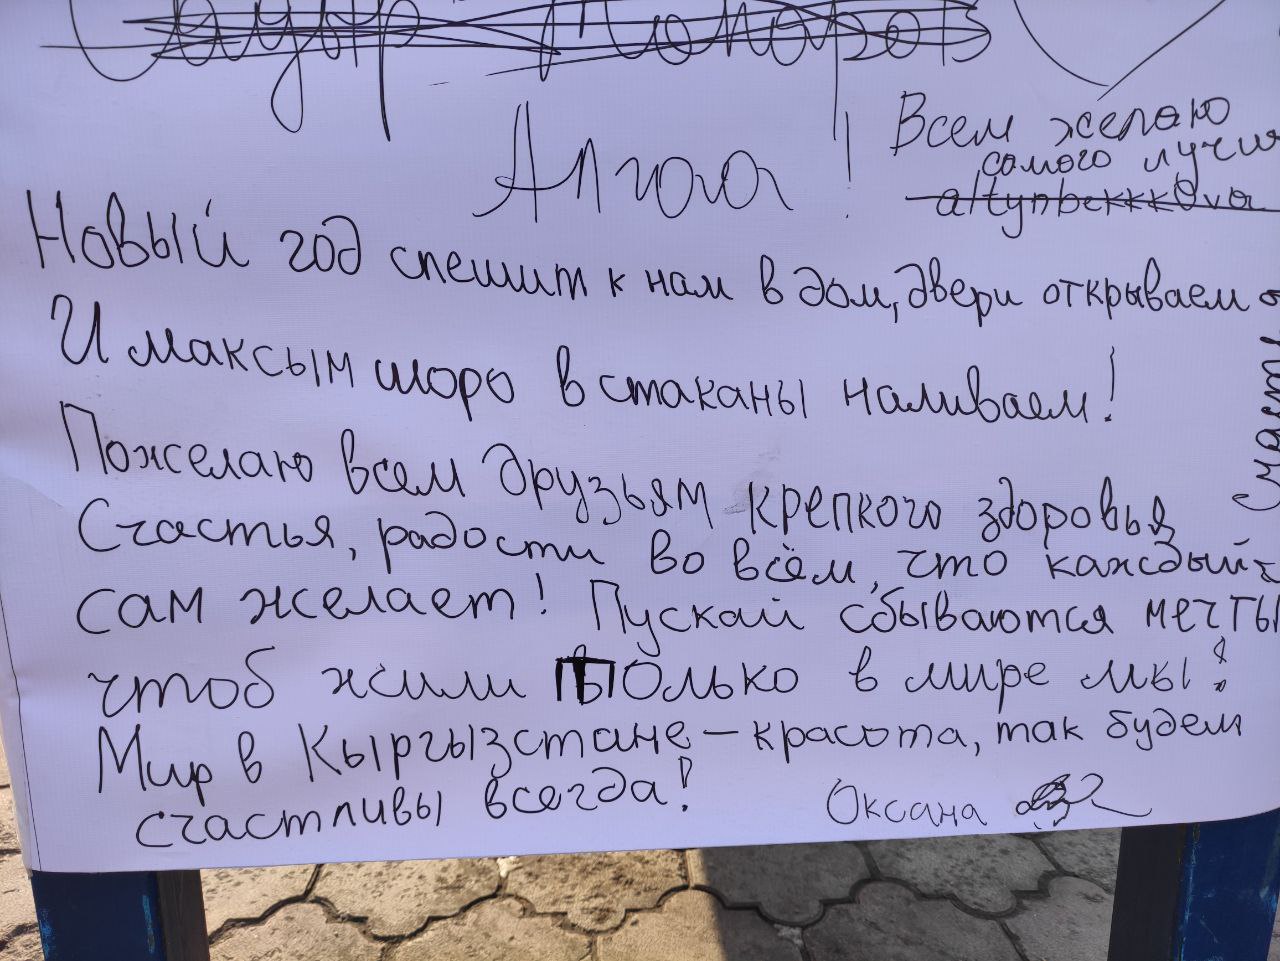 Садыр Жапаров
Алга!
Всем желаю
самого лучш
altynbekkk0va
Новый год спешит к нам в дом, двери открываем
И максым шоро в стаканы наливаем!
Пожелаю всем друзьям крепкого здоровья
Счастья, радости во всём, что каждый
сам желает! Пускай сбываются мечты
чтоб жили только в мире мы!
Мир в Кыргызстане – красота, так будем
счастливы всегда!
Оксана